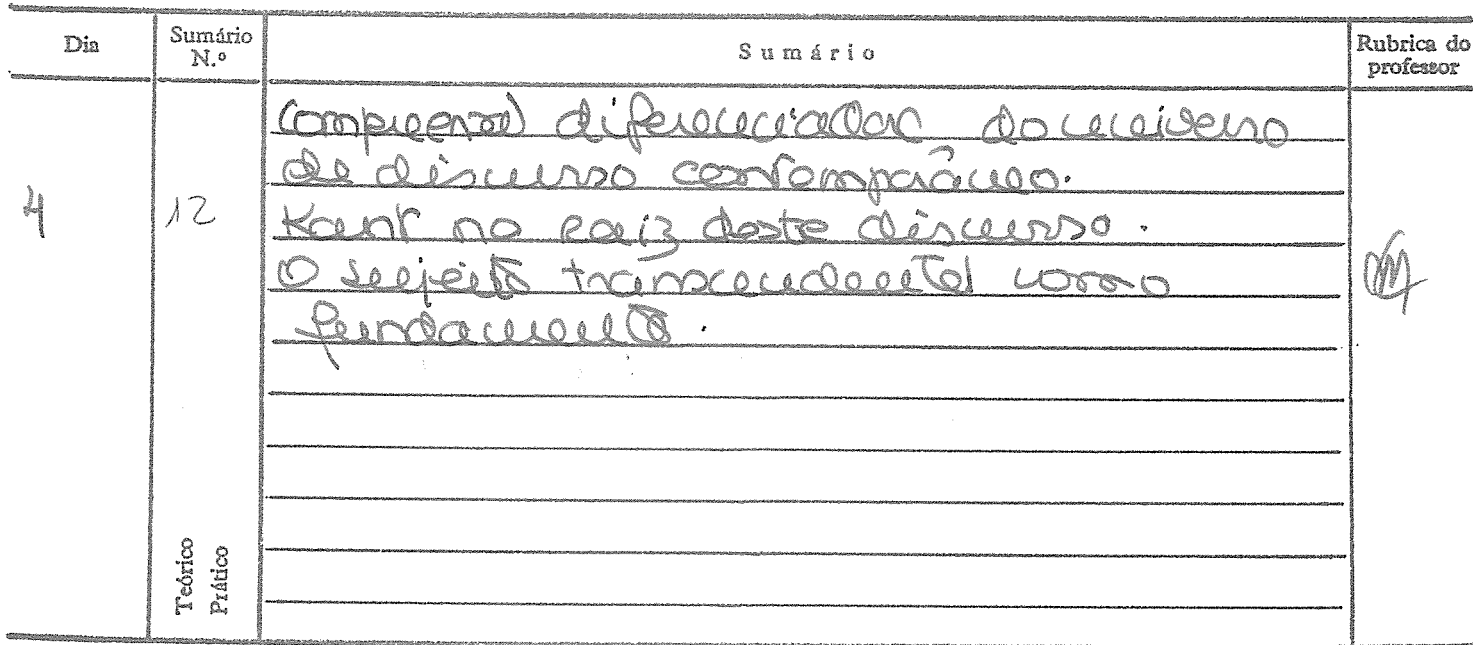 Dia
Sumário N.º
Sumário
Rubrica do professor
4
12
Compreensão diferenciadora do universo
de discurso contemporâneo.
Kant na raiz deste discurso.
O sujeito transcendental como
fundamento.
Teórico
Prático